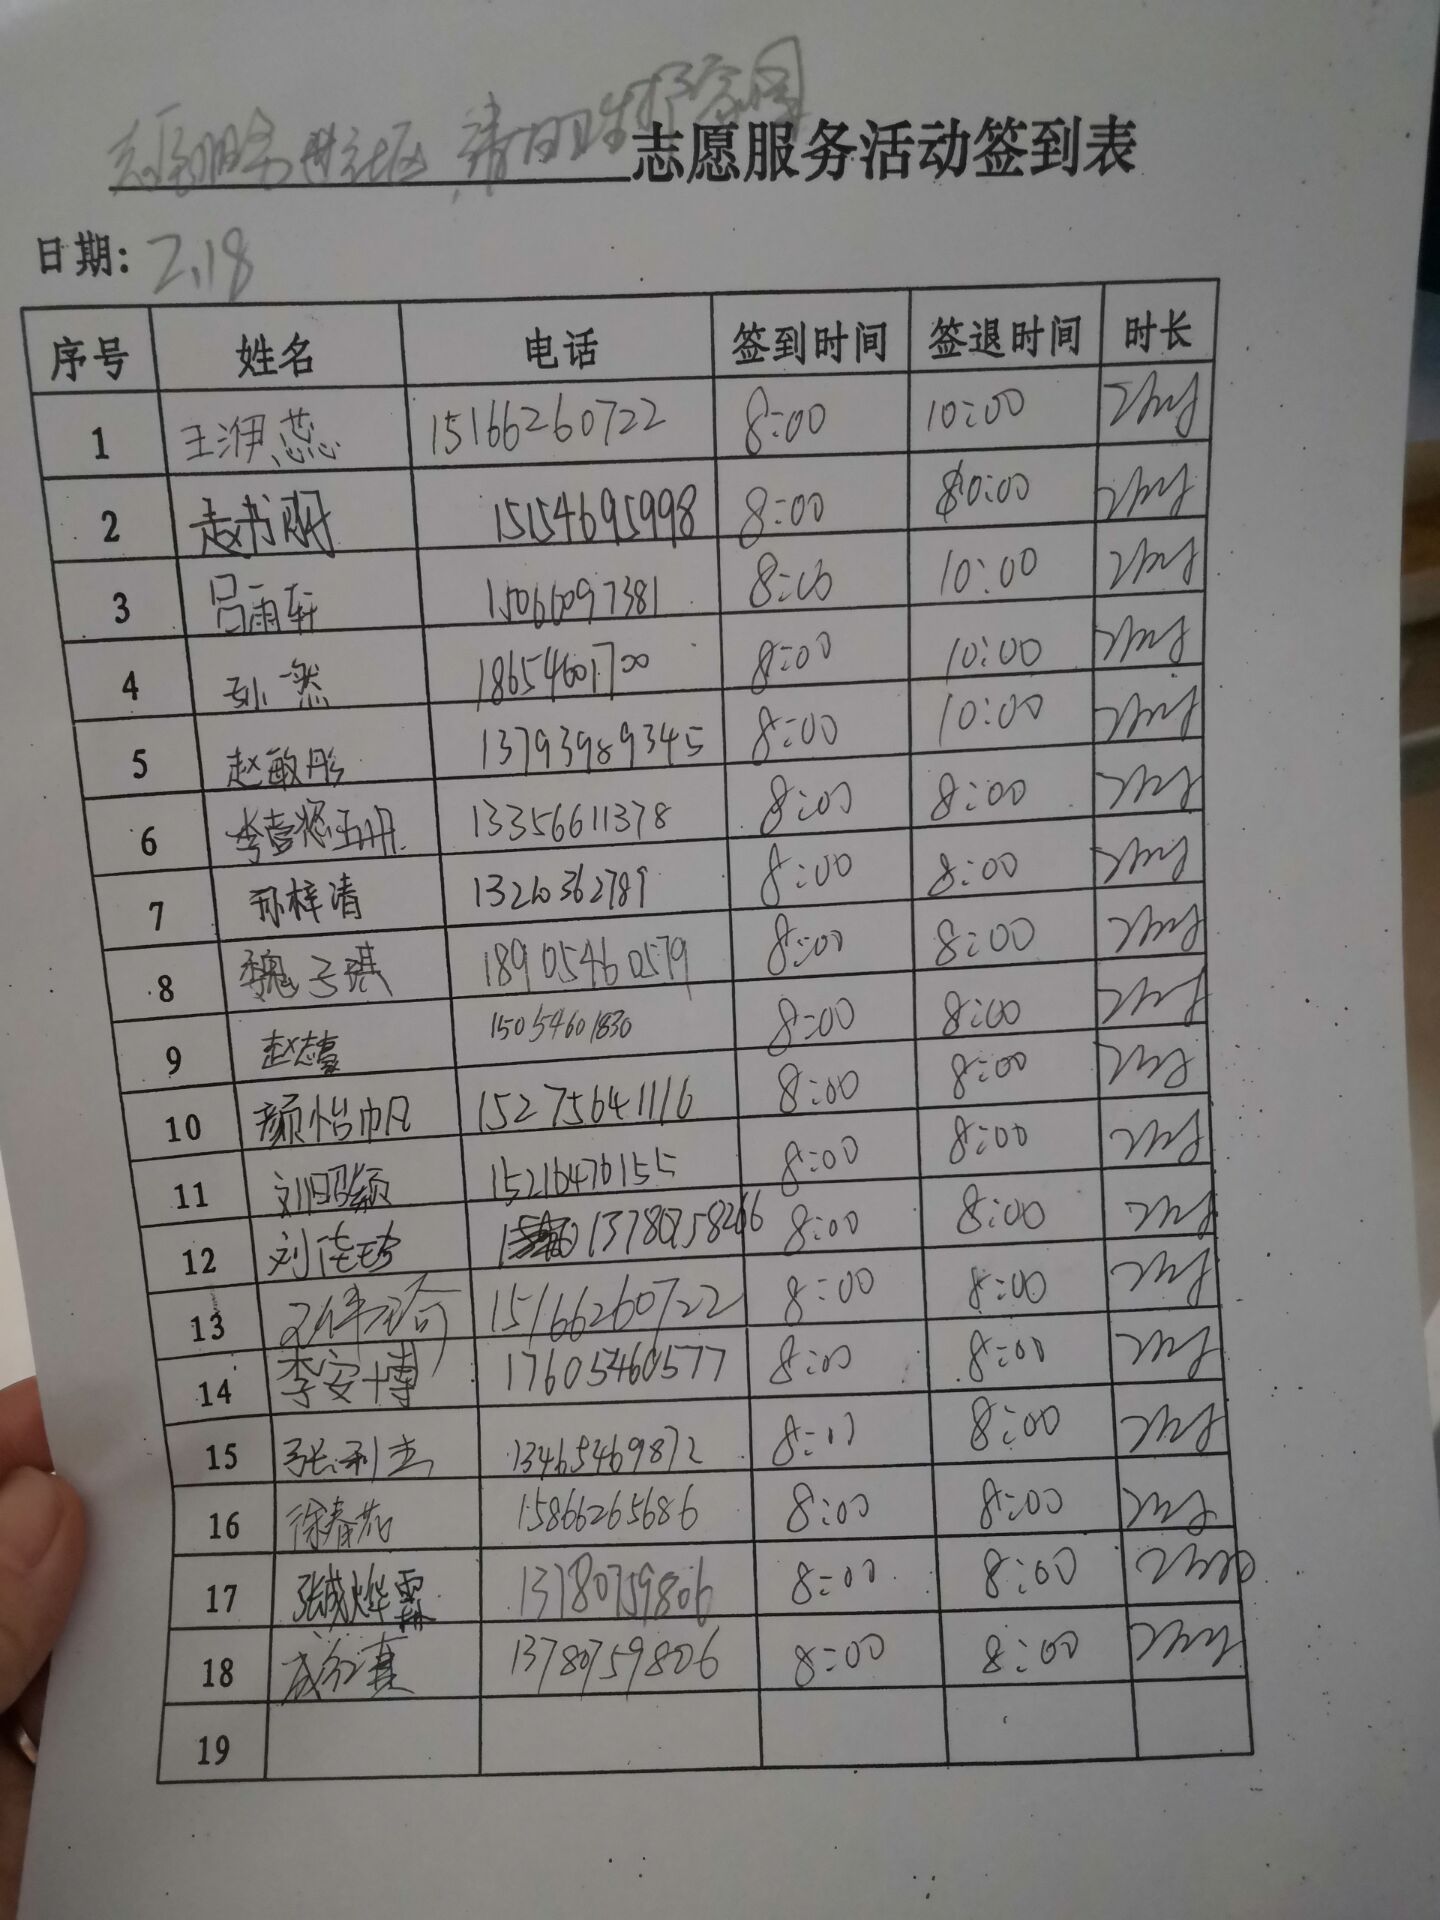 志愿服务进社区,清洁卫生护家园志愿服务活动签到表
日期: 2.18
序号 姓名 电话 签到时间 签退时间 时长
1 王洢蕊 15166260722 8:00 10:00
2 赵书玥 15154695998 8:00 10:00
3 吕雨轩 15066097381 8:00 10:00
4 孙一然 18654601700 8:00 10:00
5 赵敏彤 13793989345 8:00 10:00
6 13356611378 8:00 8:00
7 孙梓清 13210362789 8:00 8:00
8 魏子琪 18905460579 8:00 8:00
9 15054601830 8:00 8:00
10 颜怡帆 15275641116 8:00 8:00
11 刘昭颖 15216476155 8:00 8:00
12 13780758266 8:00 8:00
13 15166260722 8:00 8:00
14 李安博 17605460577 8:00 8:00
15 张利杰 13465469872 8:00 8:00
16 徐春花 15866265686 8:00 8:00
17 张成烨霖 13780759806 8:00 8:00
18 13780759806 8:00 8:00
19